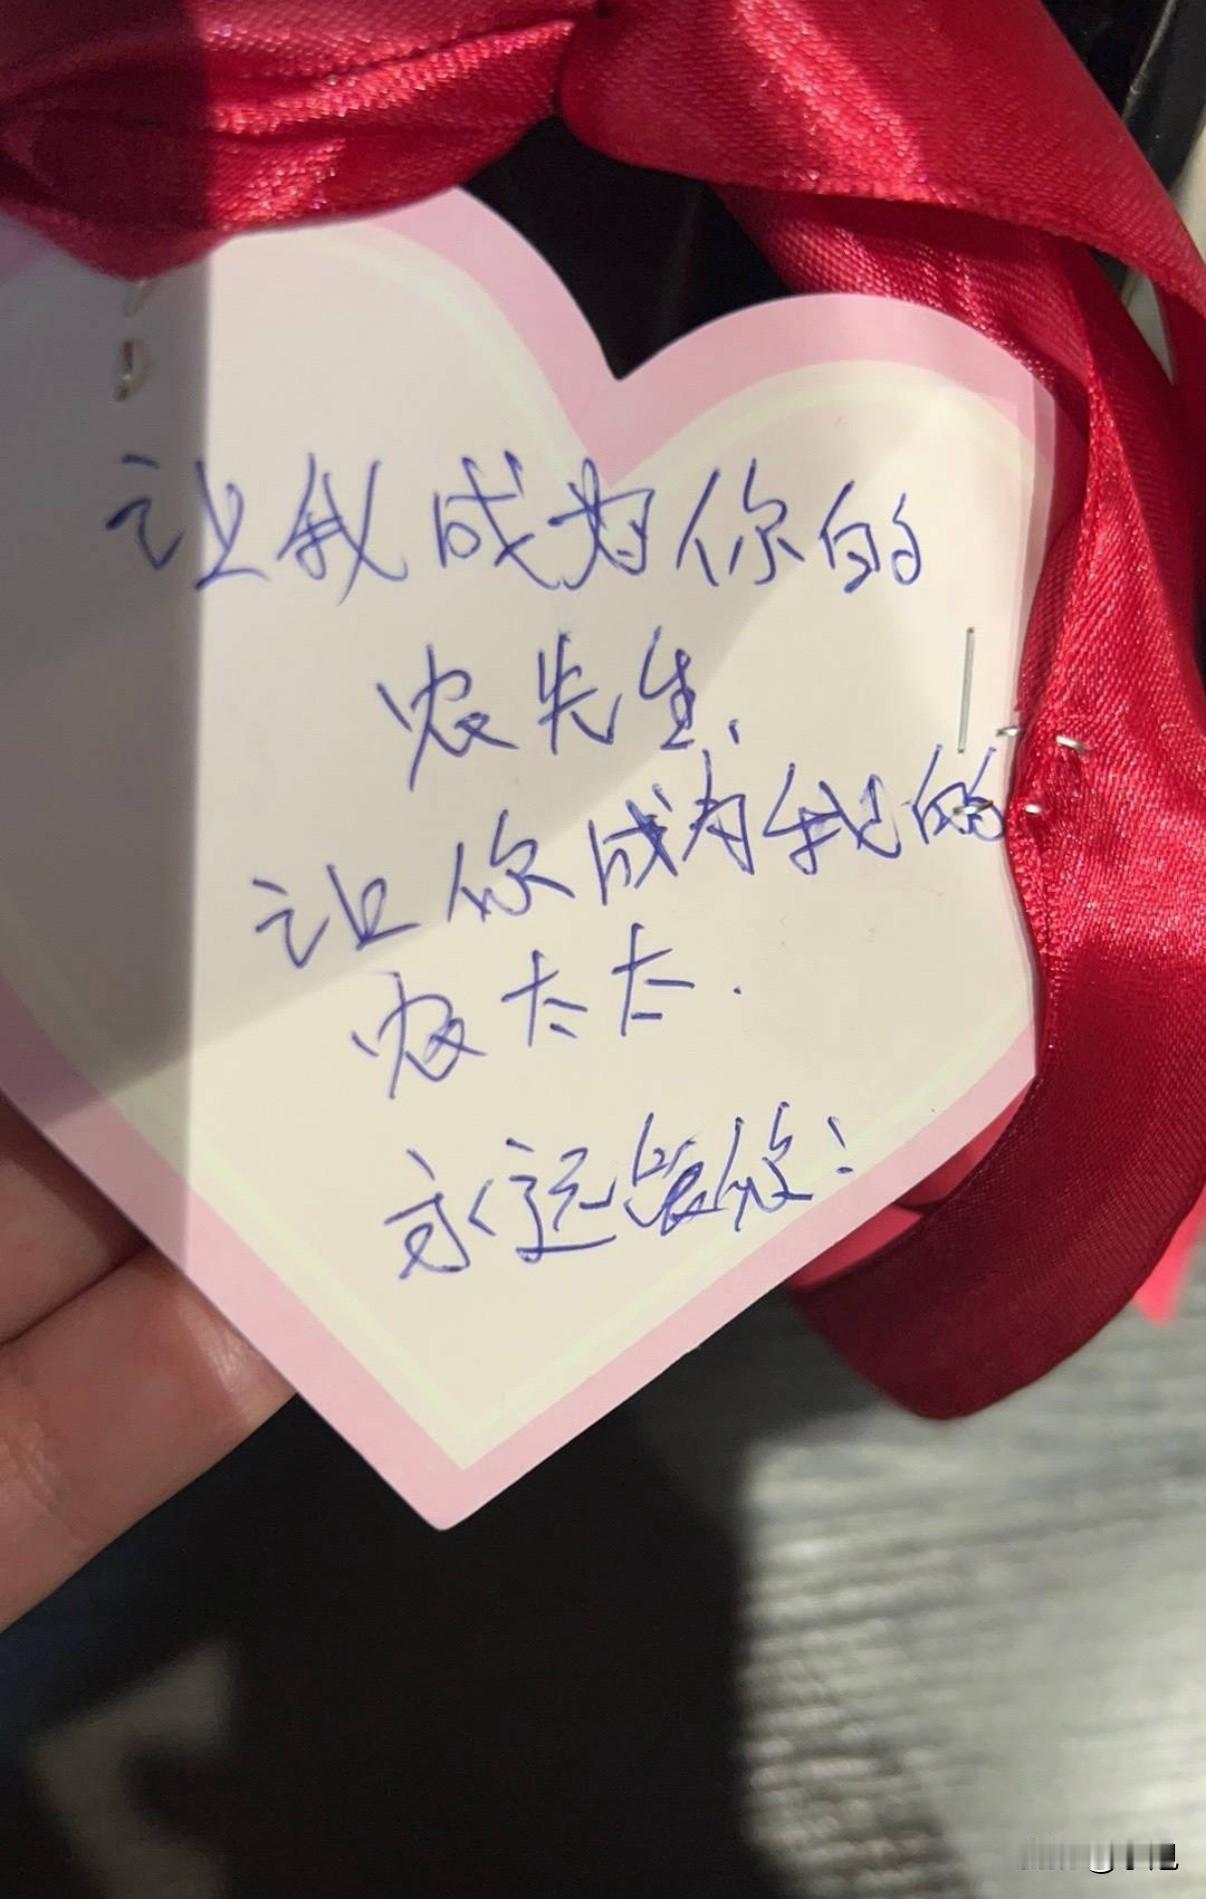 让我成为你的
农先生、
让你成为我的
农太太.
永远爱你!